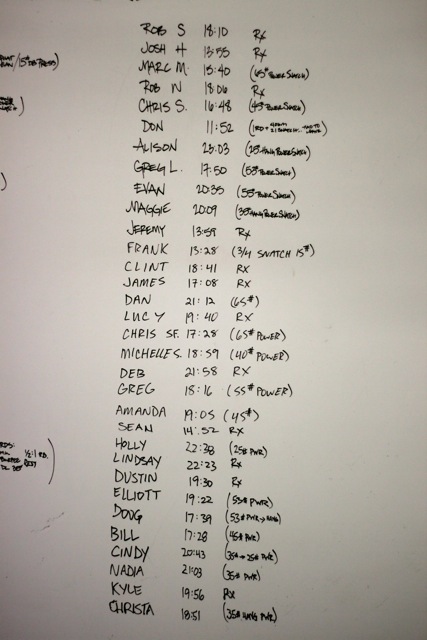 ROB S 18:10 Rx
JOSH H 13:55 Rx
MARC M. 15:40 (65# POWER SNATCH)
ROB N 18:06 Rx
CHRIS S. 16:48 (45# POWER SNATCH)
DON 11:52
ALISON 23:03 (25# HANG POWER SNATCH)
GREG L. 17:50 (53# POWER SNATCH)
EVAN 20:35 (55# POWER SNATCH)
MAGGIE 20:09 (35# HANG POWER SNATCH)
JEREMY 13:59 Rx
FRANK 13:28 (3/4 SNATCH 15#)
CLINT 18:41 RX
JAMES 17:08 RX
DAN 21:12 (65#)
LUCY 19:40 RX
CHRIS SF. 17:28 (65# POWER)
MICHELLE S. 18:59 (40# POWER)
DEB 21:58 RX
GREG 18:16 (55# POWER)
AMANDA 19:05 (45#)
SEAN 14:52 RX
HOLLY 22:38 (25# PWR)
LINDSAY 22:23 Rx
DUSTIN 19:30 Rx
ELLIOTT 19:22 (53# PWR)
DOUG 17:39 (53# PWR → HANG)
BILL 17:28 (45# PWR)
CINDY 20:43 (35# → 25# PWR)
NADIA 21:03 (35# PWR)
KYLE 19:56 RX
CHRISTA 18:51 (35# HANG PWR)